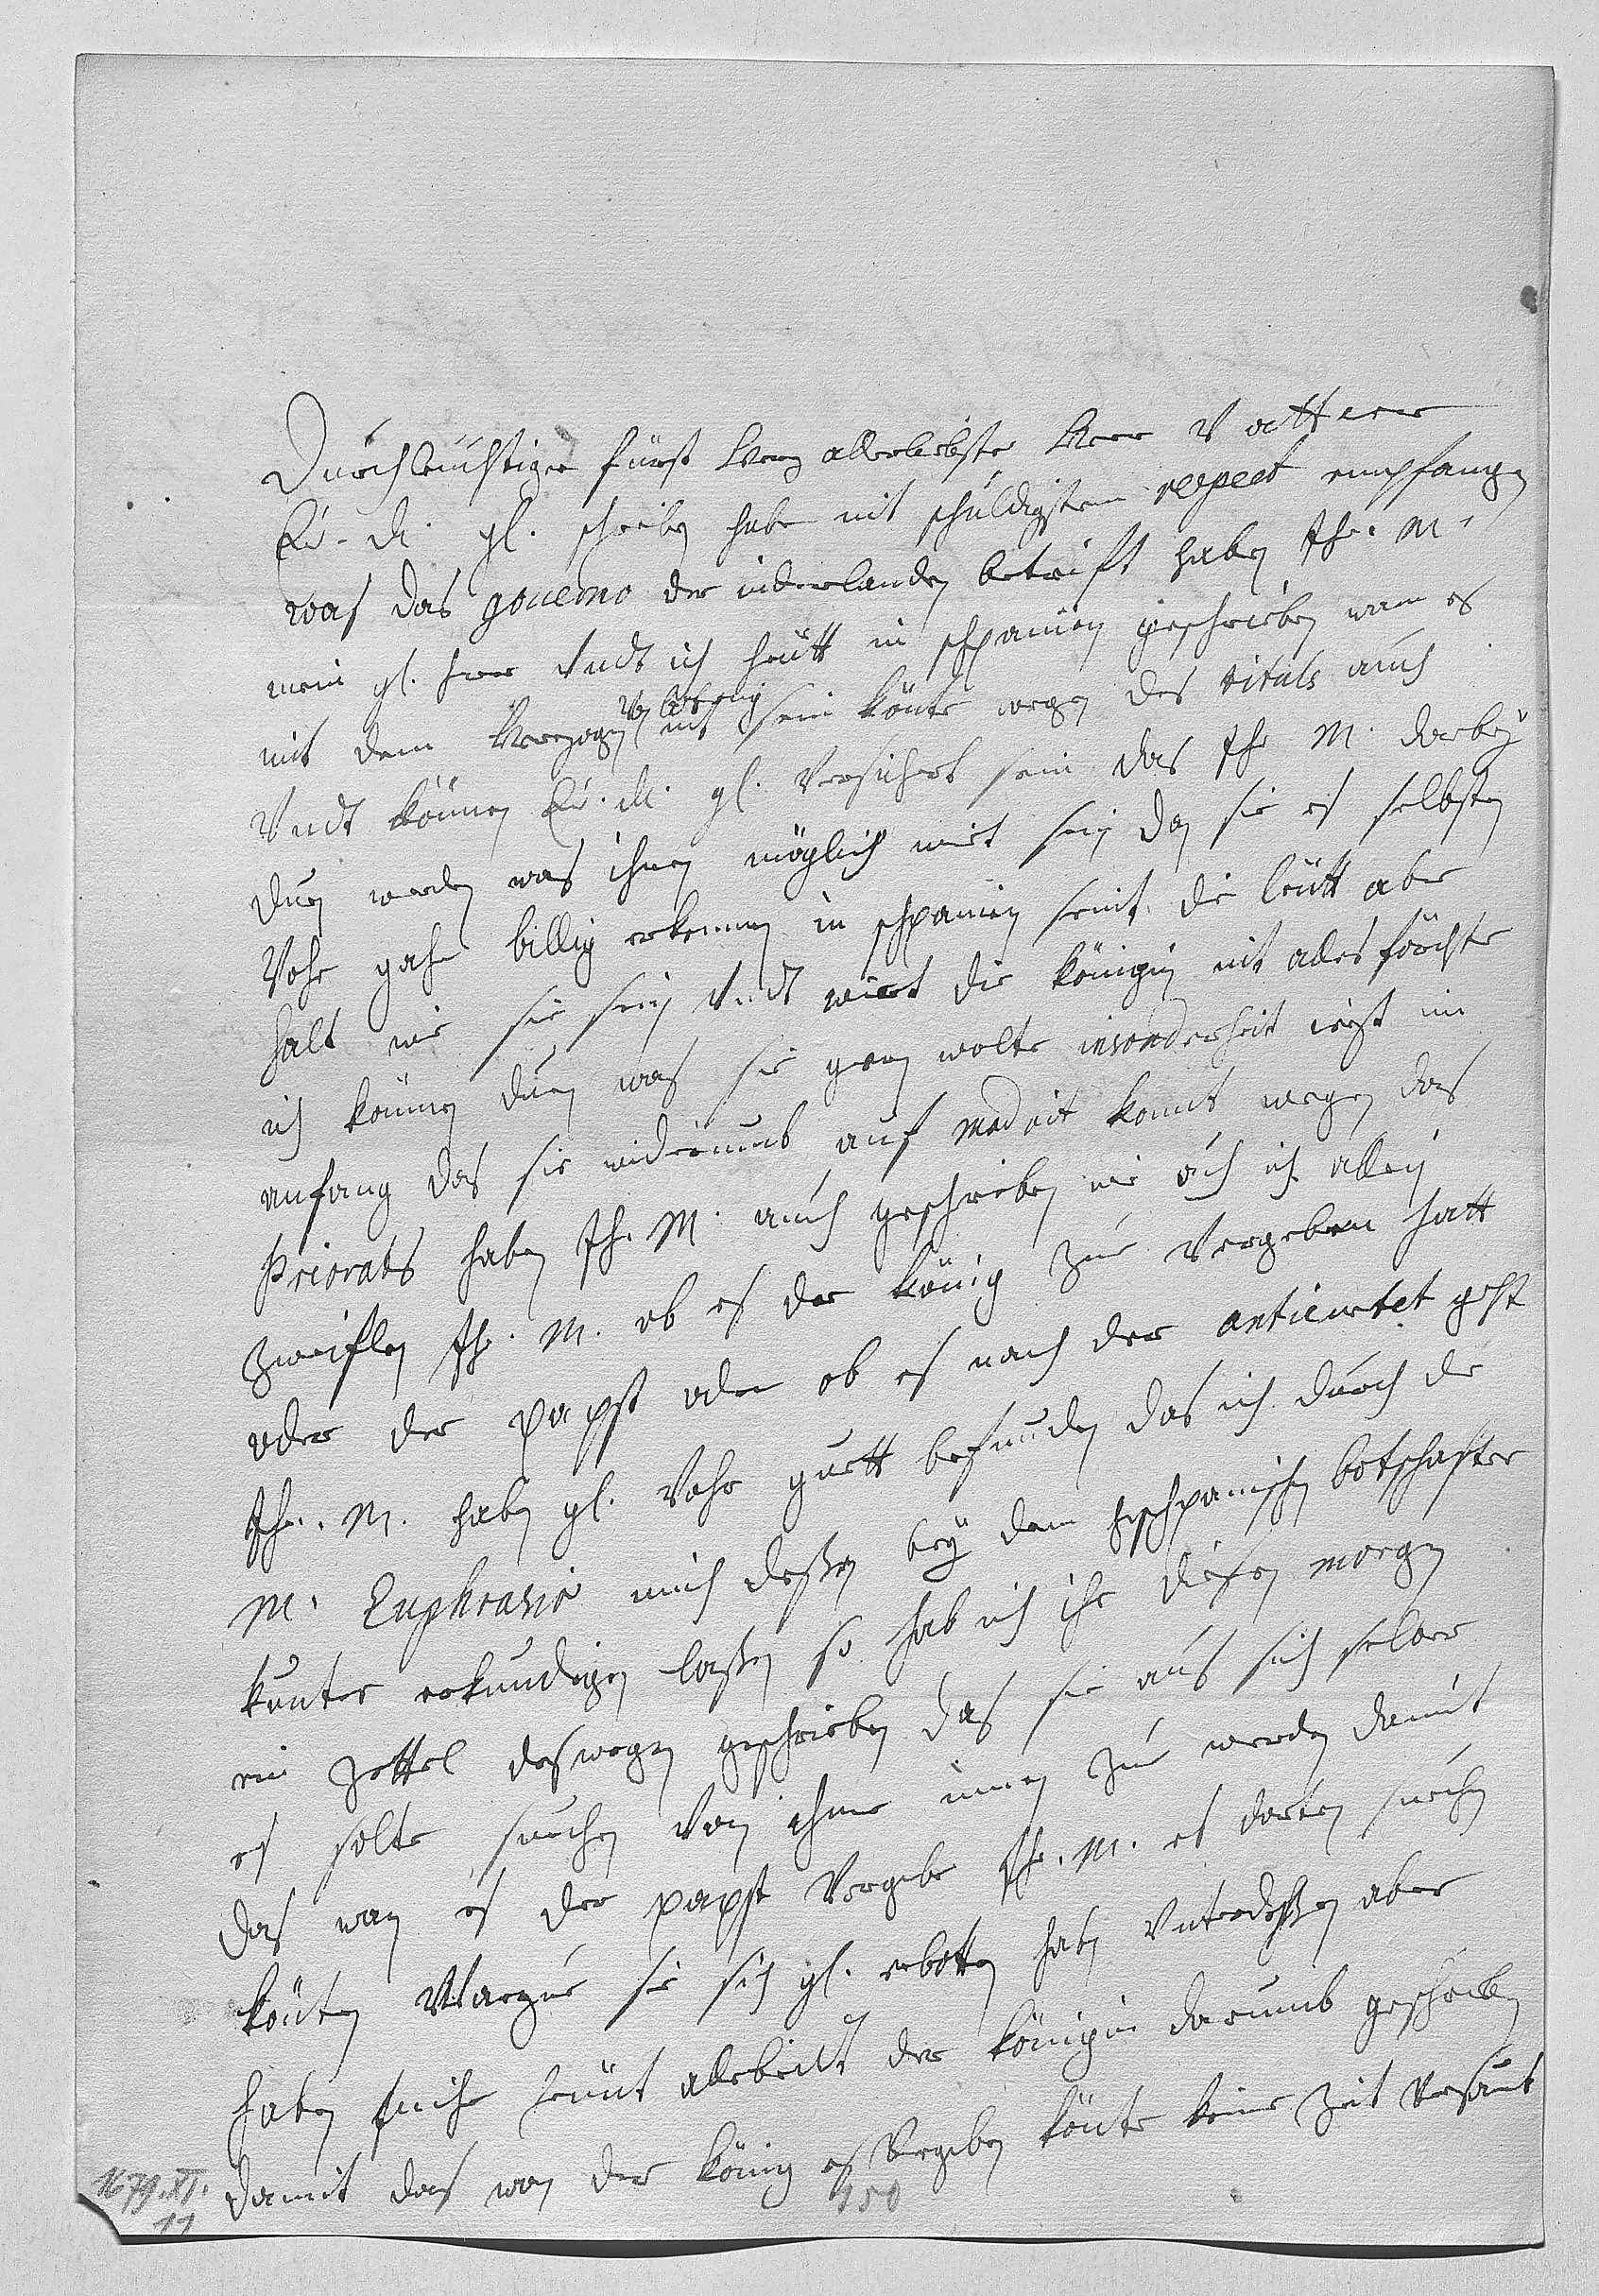 Durchleuchtiger fürst hertz allerliebster Herr Vatterr
Eu. dl. gl. schreiben habe mit schuldigstem respect empfangen
was das gouerno der niderlanden betrifft haben Ih. M.
mein gl. herr Vndt ich heutt in schpanien geschrieben wan es
von lottring
mit dem Herzogen nit sein könte wegen des tituls auch
Vndt können Eu. dl. gl. Versichert sein das Ih M. darbey
dun werden was ihnen möglich wirt sein den sie es selbsten
Vohr gahr billig erkennen in schpanien seint die leutt aber
halt wie sie sein Vndt wirt die königin nit alles förchte
ich können dun was sie gern wolte insonderheit iezt im
anfang das sie widerumb auf madrit komt wegen das
Priorats haben Ih. M. auch geschrieben wie auch ich allein
zweiflen Ih. M. ob es der könig zu Vergeben hatt
oder der papst oder ob es nach der antieuitet geht
Ih. M. haben gl. Vohr guett befunden das ich durch de
M. Euphrasie mich dessen bey dem schpanischen botschafter
kunte erkundigen lassen so hab ich ihr diesen morgen
ein zettel deswegen geschrieben das sie aus sich selber
es solte suchen Von ihme innen zu werden damit
das wan es der papst Vergebe Ih. M. es dorten suchen
könten Warzue sie sich gl. erbotten haben Vnterdessen aber
haben seihe heut allebeidt der königin darumb geschrieben
damit das wan der könig es Vergeben könte keine zeit Versaumt
1679. XI.
11
150